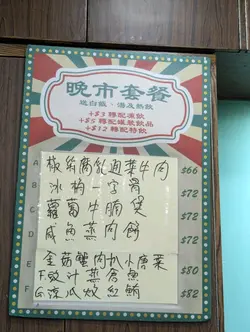 晚市套餐
送白飯、湯及熱飲
+$3 轉配凍飲
+$5 轉配罐裝飲品
+$12 轉配特飲
A 椒絲腐乳通菜牛肉 $66
B 沙 字骨 $72
C 蘿蔔牛腩煲 $72
D 咸魚蒸肉餅 $72
E 金菇蟹肉扒小唐菜 $72
F 豉汁蒸倉魚 $80
G 涼瓜炆紅𩶘 $82